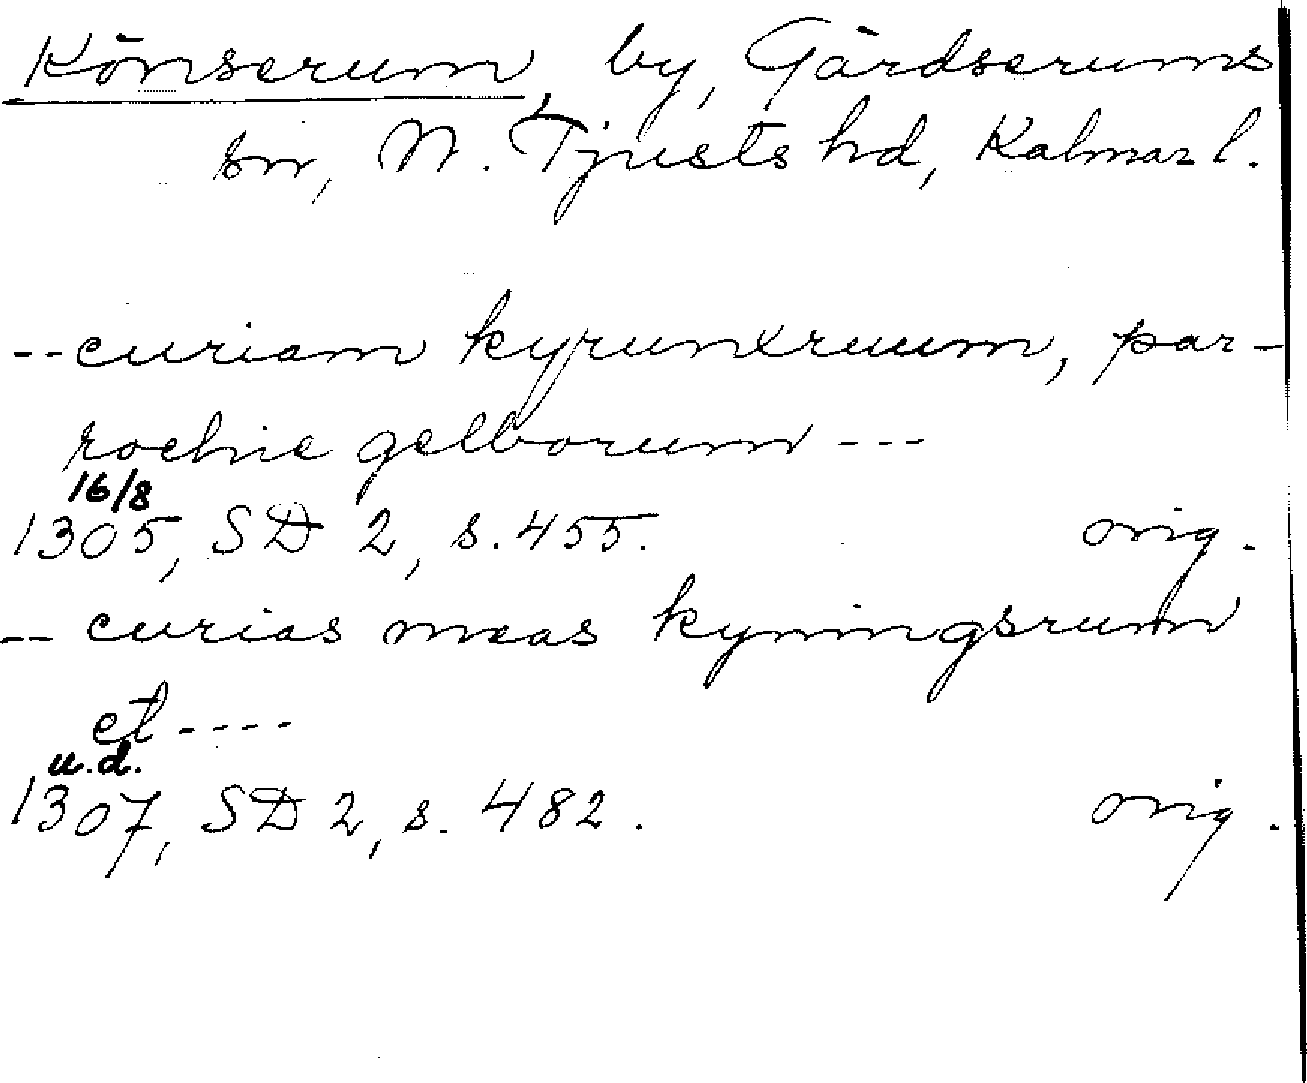 Könserum, by, Gärdserums
sn, N. Tjusts hd, Kalmar l.
-- curiam kyrunxruum, par-
rochie gelborum ---
16/8
1305, SD 2, s. 455. orig.
-- curias meas kyningsrum
et ----
u.d.
1307, SD 2, s. 482. orig.